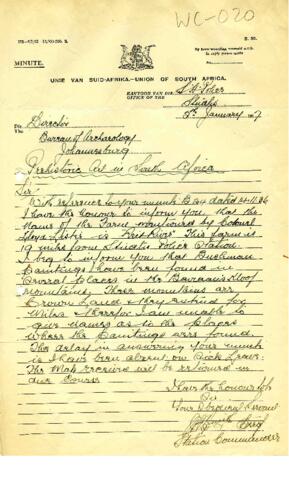 WC-020
MINUTE.
UNIE VAN SUID-AFRIKA.—UNION OF SOUTH AFRICA.
KANTOOR VAN DIE
OFFICE OF THE
S.A. Police
January
Director
Bureau of Archaeology
Johannesburg
Prehistoric Art in South Africa
Sir
With reference to your minute dated
I have the honour to inform you, that the
Name of the Farm mentioned by
is This Farm is
19 miles from Police Station
I beg to inform you that Bushman
Paintings have been found in
Several places in the
mountains. These mountains are
Crown Land & they extend for
Miles & therefor I am unable to
give names as to the places
where the Paintings were found.
The delay in answering your minute
is I have been absent on Sick Leave.
The Map received will be returned in
due course
I have the honour to
be
Your Obedient Servant
Station Commander